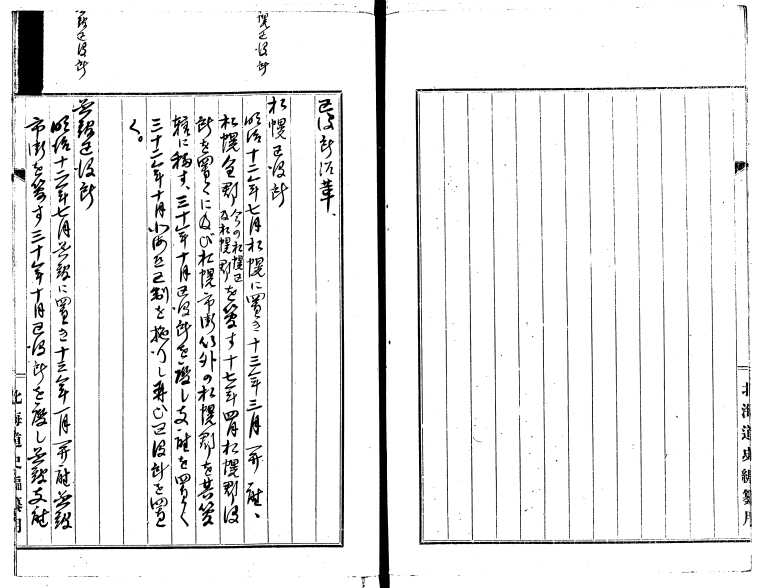 北海道史編纂用
札幌区役所
区役所沿革、
札幌区役所
明治十二年七月札幌に置き十三年二月開庁、
札幌全郡今の札幌区及札幌郡を管す十七年四月札幌郡役
所を置くに及び札幌市街以外の札幌郡を其管
轄に移す、三十年十月区役所を廃し支庁を置く
三十二年十月北海道区制を施行し再び区役所を置
く。
函館区役所
函館区役所
明治十二年七月函館に置き十三年一月開庁函館
市街を管す三十年十月区役所を廃し函館支庁
北海道史編纂用